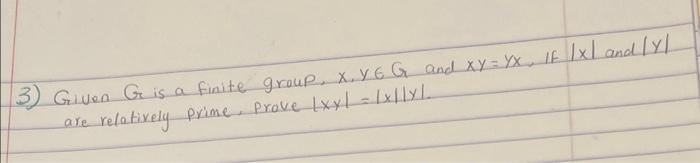 3) Given G is a finite group, x, y ∈ G and xy = yx. If |x| and |y|
are relatively prime, prove |xy| = |x||y|.